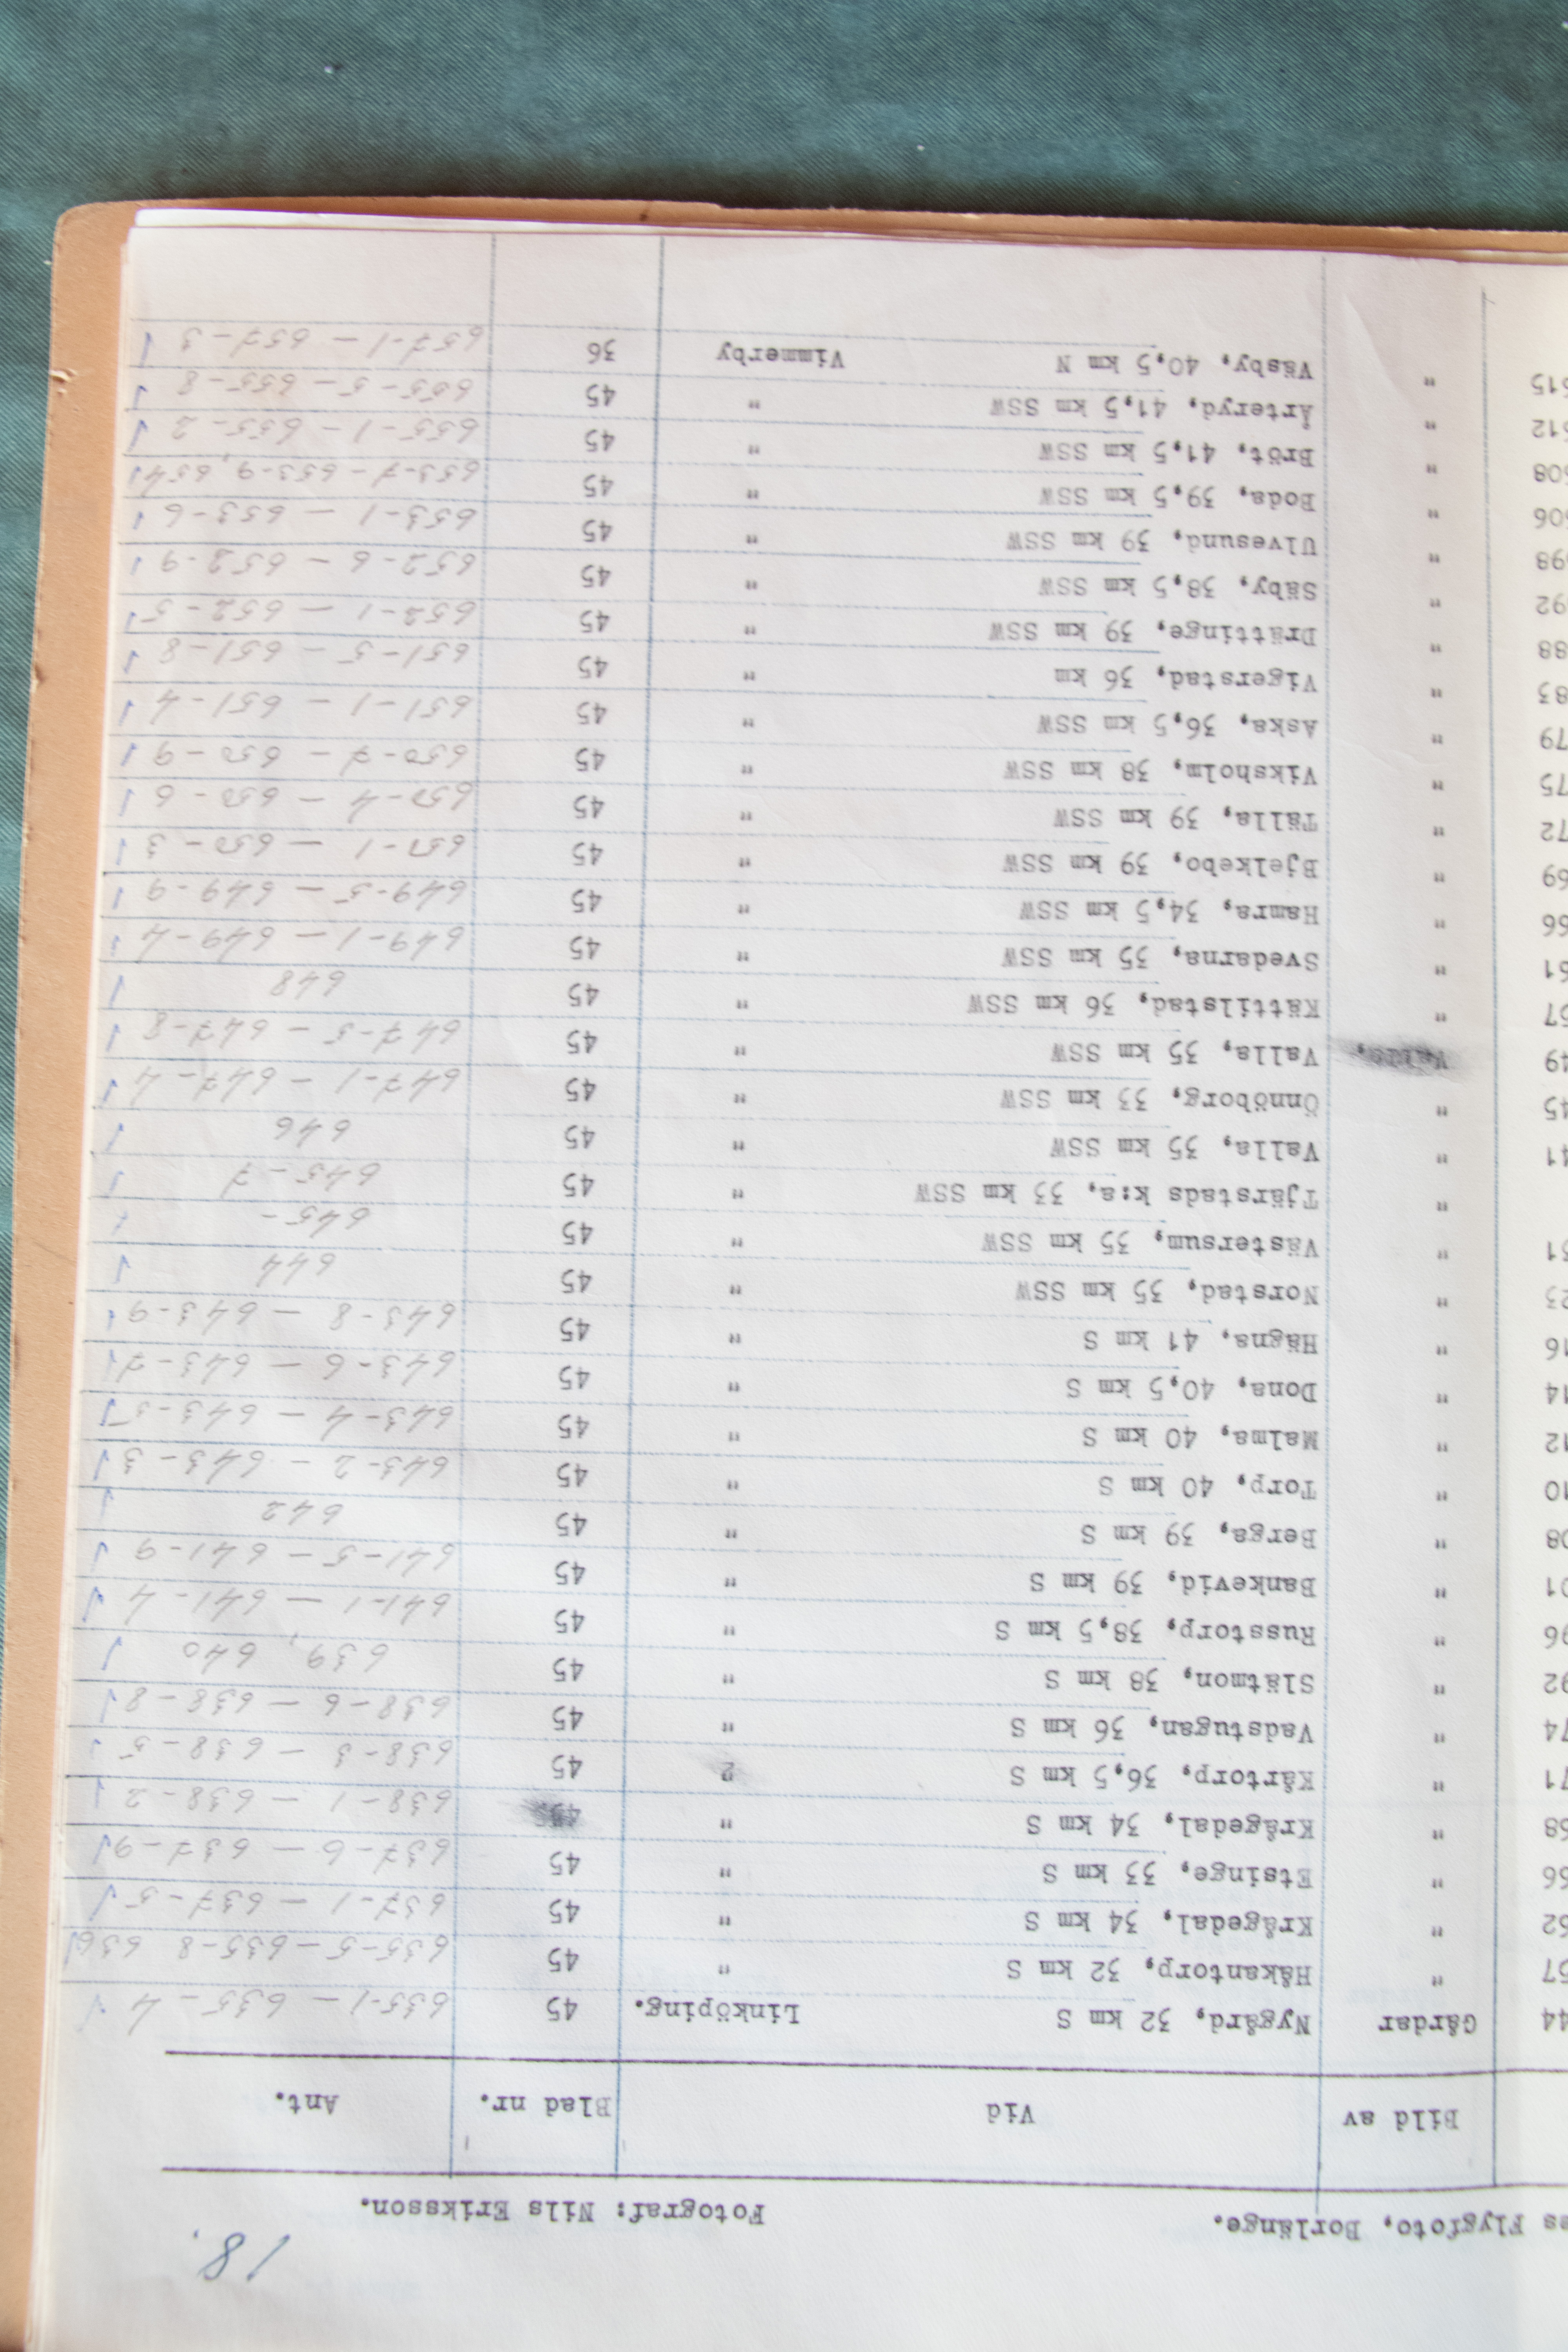 18.
es Flygfoto, Borlänge. Fotograf: Nils Eriksson.
Bild av Vid Blad nr. Ant.
44 Gårdar Nygård, 32 km S Linköping. 45 635-1 — 635-4
57 " Håkantorp, 32 km S " 45 635-5 — 635-8 636
62 " Krågedal, 34 km S " 45 637-1 — 637-5
66 " Etsinge, 33 km S " 45 637-6 — 637-9
68 " Krågedal, 34 km S " 45 638-1 — 638-2
71 " Kårtorp, 36,5 km S " 45 638-3 — 638-5
74 " Vadstugan, 36 km S " 45 638-6 — 638-8
92 " Slätmon, 38 km S " 45 639, 640
96 " Russtorp, 38,5 km S " 45 641-1 — 641-4
01 " Bankevid, 39 km S " 45 641-5 — 641-9
08 " Berga, 39 km S " 45 642
10 " Torp, 40 km S " 45 643-2 — 643-3
12 " Malma, 40 km S " 45 643-4 — 643-5
14 " Dona, 40,5 km S " 45 643-6 — 643-7
16 " Hägna, 41 km S " 45 643-8 — 643-9
23 " Norstad, 35 km SSW " 45 644
31 " Västersum, 35 km SSW " 45 645-
" Tjärstads k:a, 33 km SSW " 45 645-7
41 " Valla, 35 km SSW " 45 646
45 " Önnöborg, 33 km SSW " 45 647-1 — 647-4
49 Valla, 35 km SSW " 45 647-5 — 647-8
57 " Kättilstad, 36 km SSW " 45 648
61 " Svedarna, 35 km SSW " 45 649-1 — 649-4
66 " Hamra, 34,5 km SSW " 45 649-5 — 649-9
69 " Bjelkebo, 39 km SSW " 45 650-1 — 650-3
72 " Tälla, 39 km SSW " 45 650-4 — 650-6
75 " Viksholm, 38 km SSW " 45 650-7 — 650-9
79 " Aska, 36,5 km SSW " 45 651-1 — 651-4
83 " Vigerstad, 36 km " 45 651-5 — 651-8
88 " Drättinge, 39 km SSW " 45 652-1 — 652-5
92 " Säby, 38,5 km SSW " 45 652-6 — 652-9
98 " Ulvesund, 39 km SSW " 45 653-1 — 653-6
606 " Boda, 39,5 km SSW " 45 653-7 — 653-9, 654
608 " Bröt, 41,5 km SSW " 45 655-1 — 655-2
612 " Årteryd, 41,5 km SSW " 45 655-5 — 655-8
615 " Väsby, 40,5 km N Vimmerby 36 657-1 — 657-3